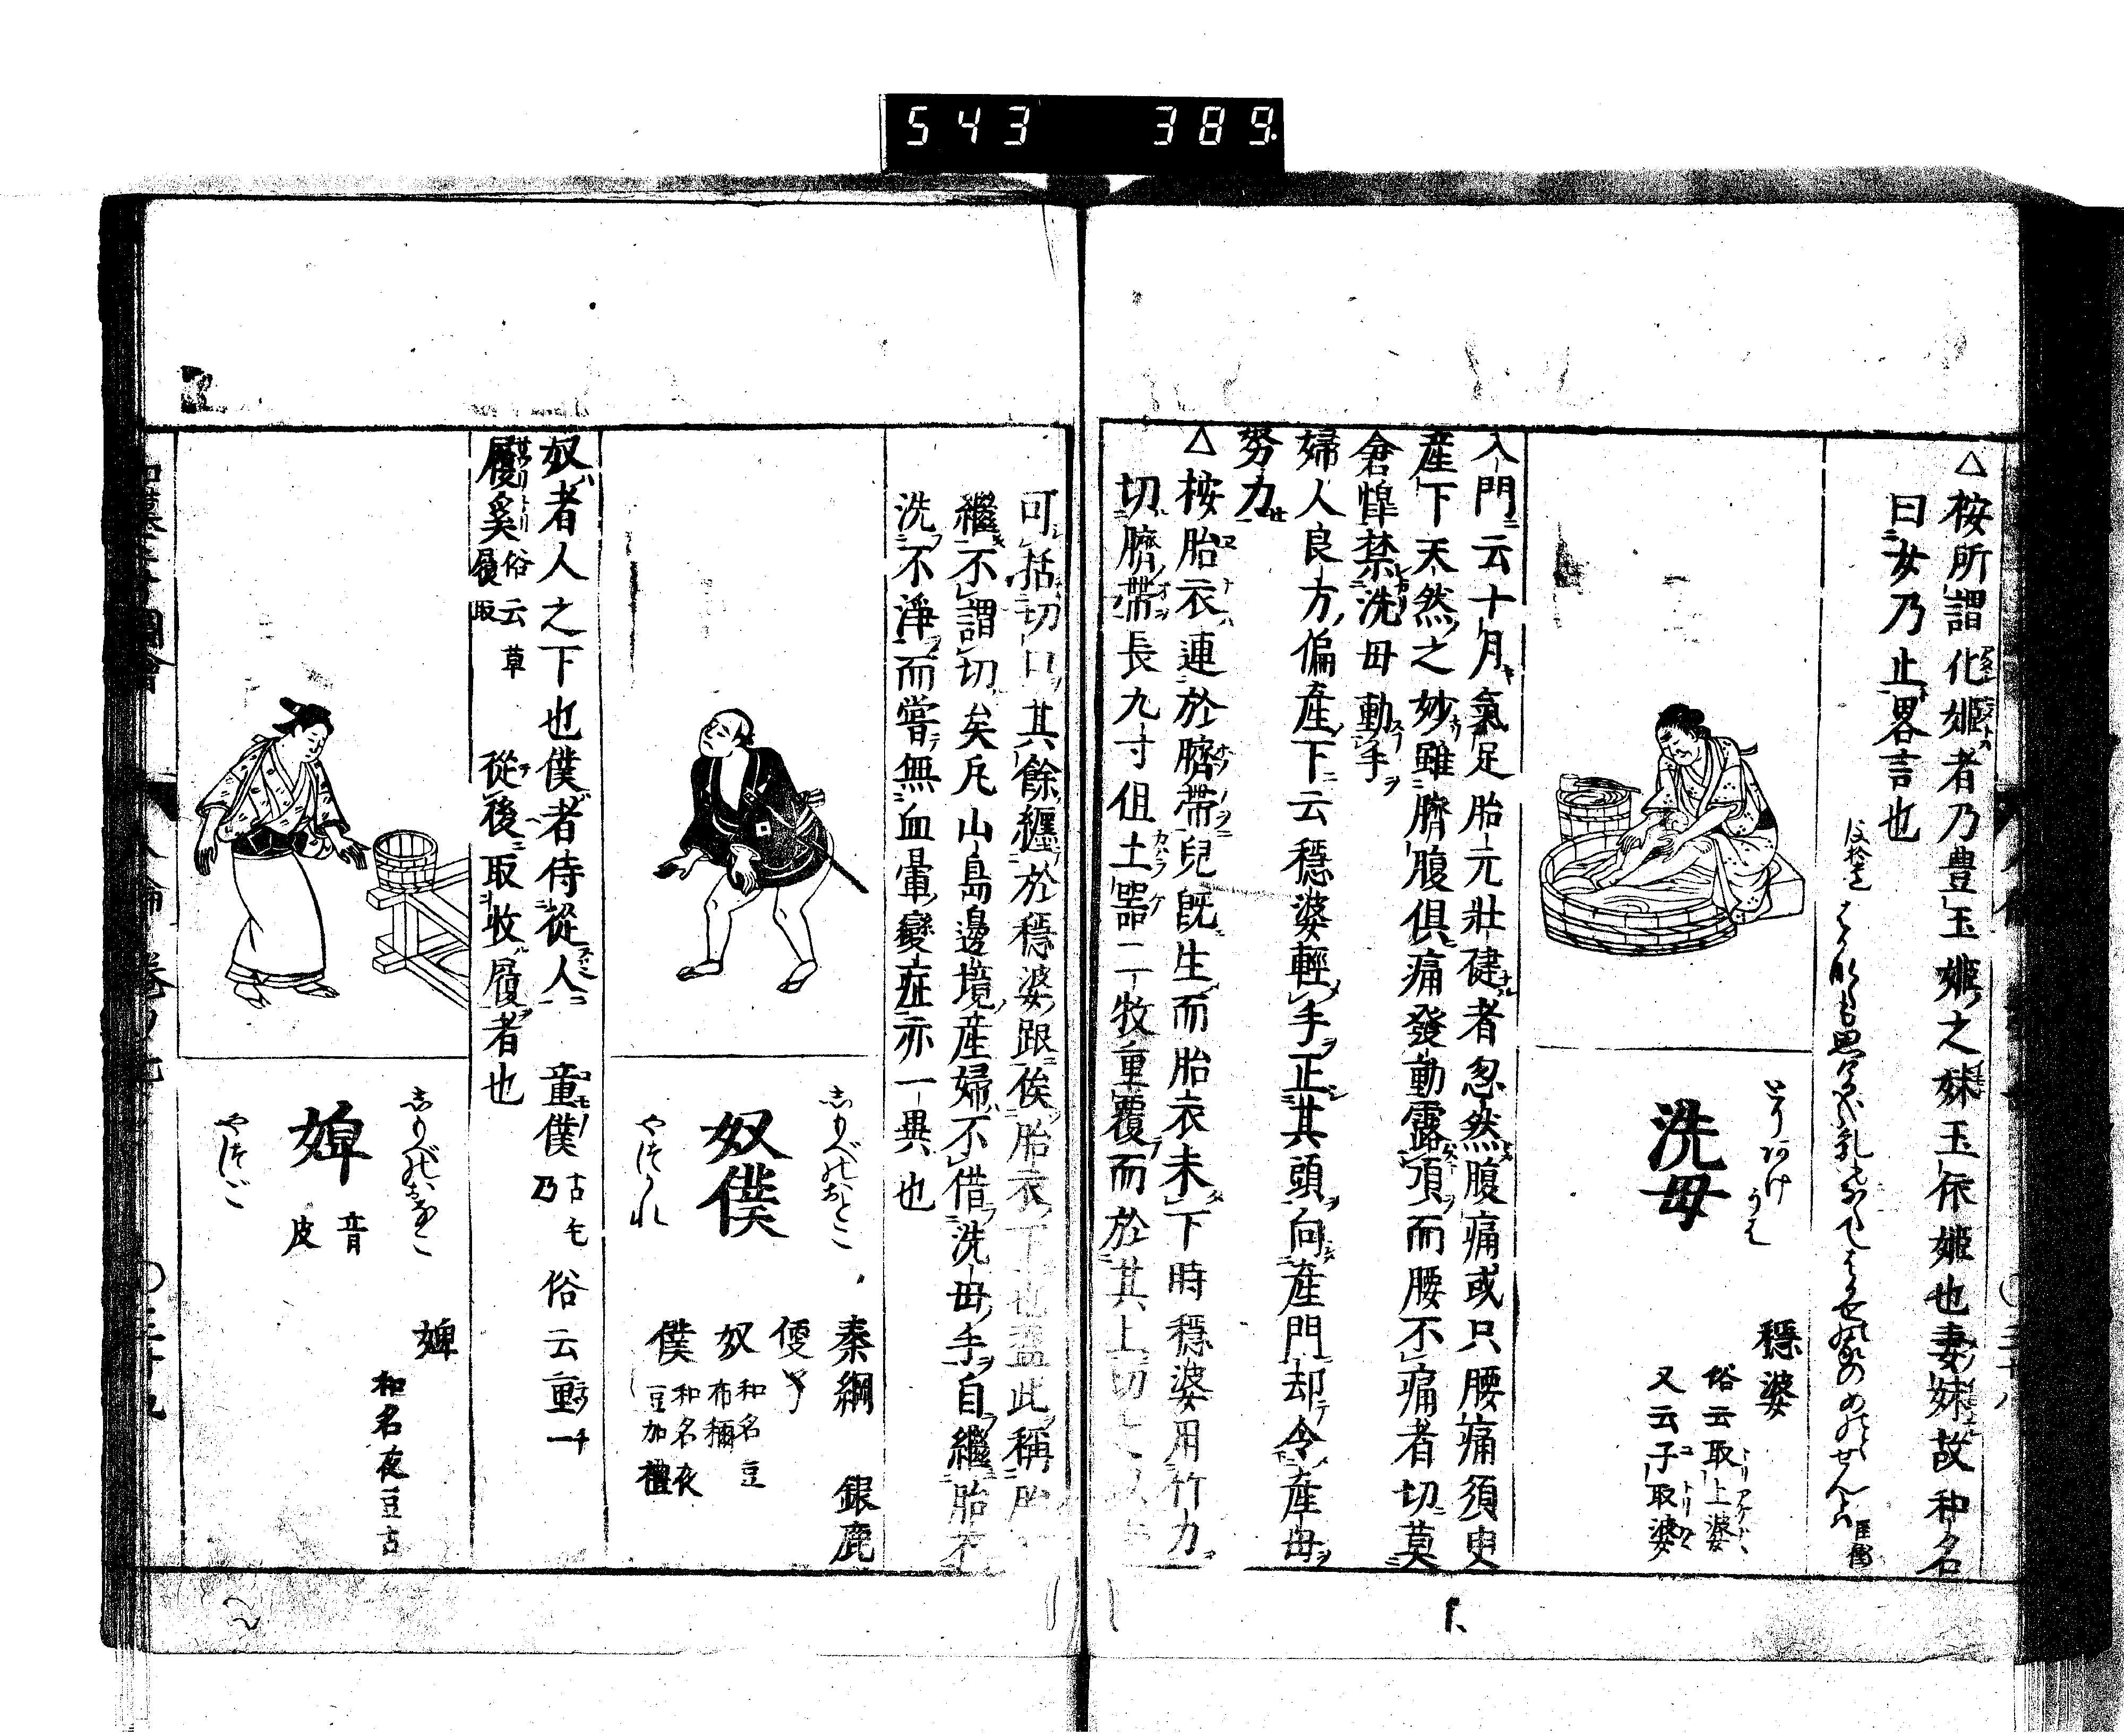 543 389
△桉所謂化姫者乃豊玉姫之妹玉依姫也妻妹故和名
曰女乃止畧言也
洗母
とりあげうば
穏婆
俗云取上婆
又云子取婆
入門云十月氣足胎元壯健者忽然腹痛或只腰痛須臾
產下天然之妙雖臍腹俱痛發動露頂而腰不痛者切莫
倉惶禁洗母動手
婦人良方偏產下云穏婆輕手正其頭向產門却令產母
努力
△桉胎衣連於臍帶兒既生而胎衣未下時穏婆用竹刀
切臍帶長九寸但土器二枚重覆而於其上切
可括切口其餘纏於穏婆跟俟胎衣下也蓋此稱胎
繼不謂切矣凡山島邊境產婦不借洗母手自繼胎衣
洗不淨而嘗無血暈變症亦一異也
奴僕
しもべ おとこ
やつかれ
秦綱 銀鹿
便了
奴 和名豆布禰
僕 和名夜豆加禮
奴者人之下也僕者侍從人 童僕 古毛乃 俗云重一
履奚 俗云草履取 從後取收履者也
婢
やつこ
音皮
婢
和名夜豆古